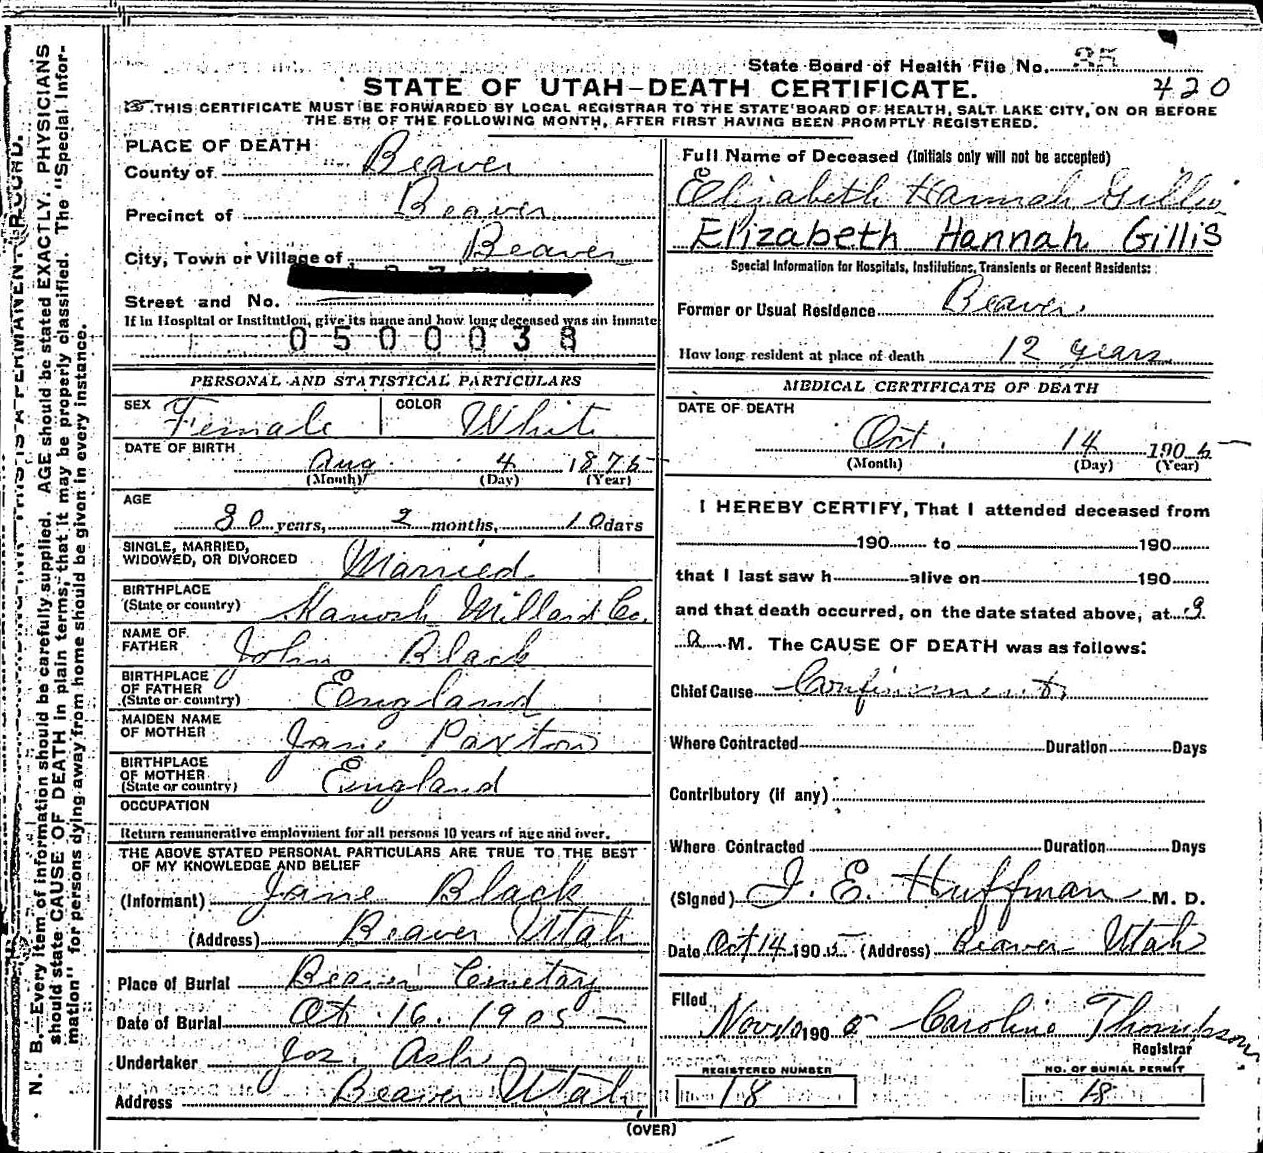 State Board of Health File No. 35
420
STATE OF UTAH—DEATH CERTIFICATE.
THIS CERTIFICATE MUST BE FORWARDED BY LOCAL REGISTRAR TO THE STATE BOARD OF HEALTH, SALT LAKE CITY, ON OR BEFORE
THE 5TH OF THE FOLLOWING MONTH, AFTER FIRST HAVING BEEN PROMPTLY REGISTERED.
PLACE OF DEATH
County of Beaver
Precinct of Beaver
City, Town or Village of Beaver
Street and No.
If in Hospital or Institution, give its name and how long deceased was an inmate
0500038
PERSONAL AND STATISTICAL PARTICULARS
SEX Female COLOR White
DATE OF BIRTH
Aug. 4 1875
(Month) (Day) (Year)
AGE
30 years, 2 months, 10 days
SINGLE, MARRIED,
WIDOWED, OR DIVORCED Married
BIRTHPLACE
(State or country) Kanosh Millard Co.
NAME OF
FATHER John Black
BIRTHPLACE
OF FATHER
(State or country) England
MAIDEN NAME
OF MOTHER Jane Paxton
BIRTHPLACE
OF MOTHER
(State or country) England
OCCUPATION
Return remunerative employment for all persons 10 years of age and over.
THE ABOVE STATED PERSONAL PARTICULARS ARE TRUE TO THE BEST
OF MY KNOWLEDGE AND BELIEF
(Informant) Jane Black
(Address) Beaver Utah
Place of Burial Beaver Cemetary
Date of Burial Oct. 16. 1905
Undertaker Jos. Ashe
Address Beaver Utah
Full Name of Deceased (Initials only will not be accepted)
Elizabeth Hannah Gillis
Elizabeth Hannah Gillis
Special Information for Hospitals, Institutions, Transients or Recent Residents:
Former or Usual Residence Beaver.
How long resident at place of death 12 years
MEDICAL CERTIFICATE OF DEATH
DATE OF DEATH
Oct. 14 1905
(Month) (Day) (Year)
I HEREBY CERTIFY, That I attended deceased from
190 to 190
that I last saw h alive on 190
and that death occurred, on the date stated above, at 9
a M. The CAUSE OF DEATH was as follows:
Chief Cause Confinement
Where Contracted Duration Days
Contributory (if any)
Where Contracted Duration Days
(Signed) J. E. Huffman M. D.
Date Oct 14 1905 (Address) Beaver Utah
Filed Nov 10 1905 Caroline Thompson
Registrar
REGISTERED NUMBER NO. OF BURIAL PERMIT
18 18
(OVER)
N. B.—Every item of information should be carefully supplied. AGE should be stated EXACTLY. PHYSICIANS
should state CAUSE OF DEATH in plain terms, that it may be properly classified. The "Special Infor-
mation" for persons dying away from home should be given in every instance.